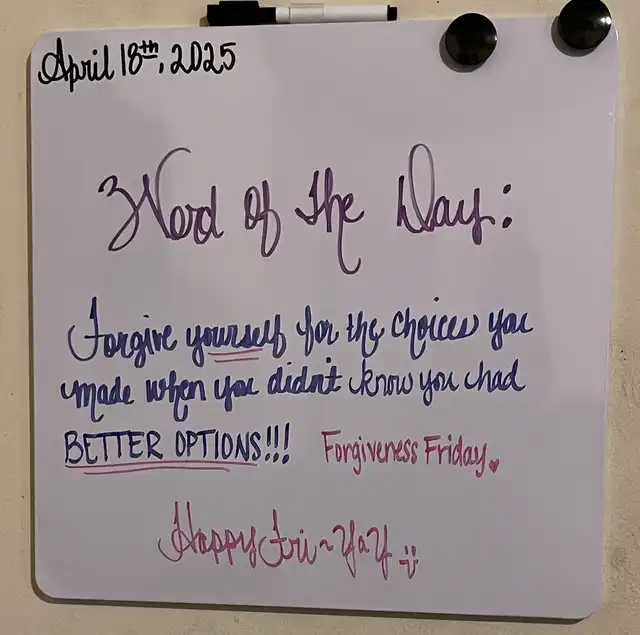 April 18th, 2025
Word of the Day:
Forgive yourself for the choices you
made when you didn't know you had
BETTER OPTIONS!!! Forgiveness Friday
Happy Fri~YaY